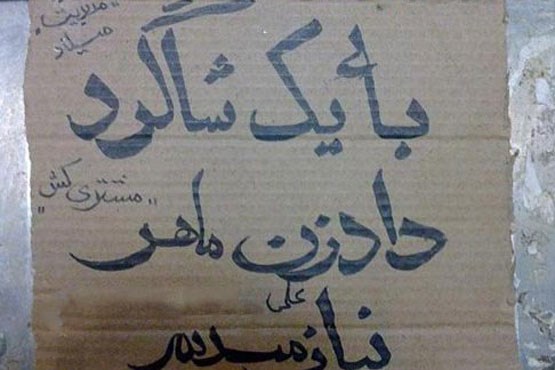 "مدیریت"
میلاد
بأ یک شاگرد
"مشتری کش"
دادزن ماهر
علی
نیازمندیم